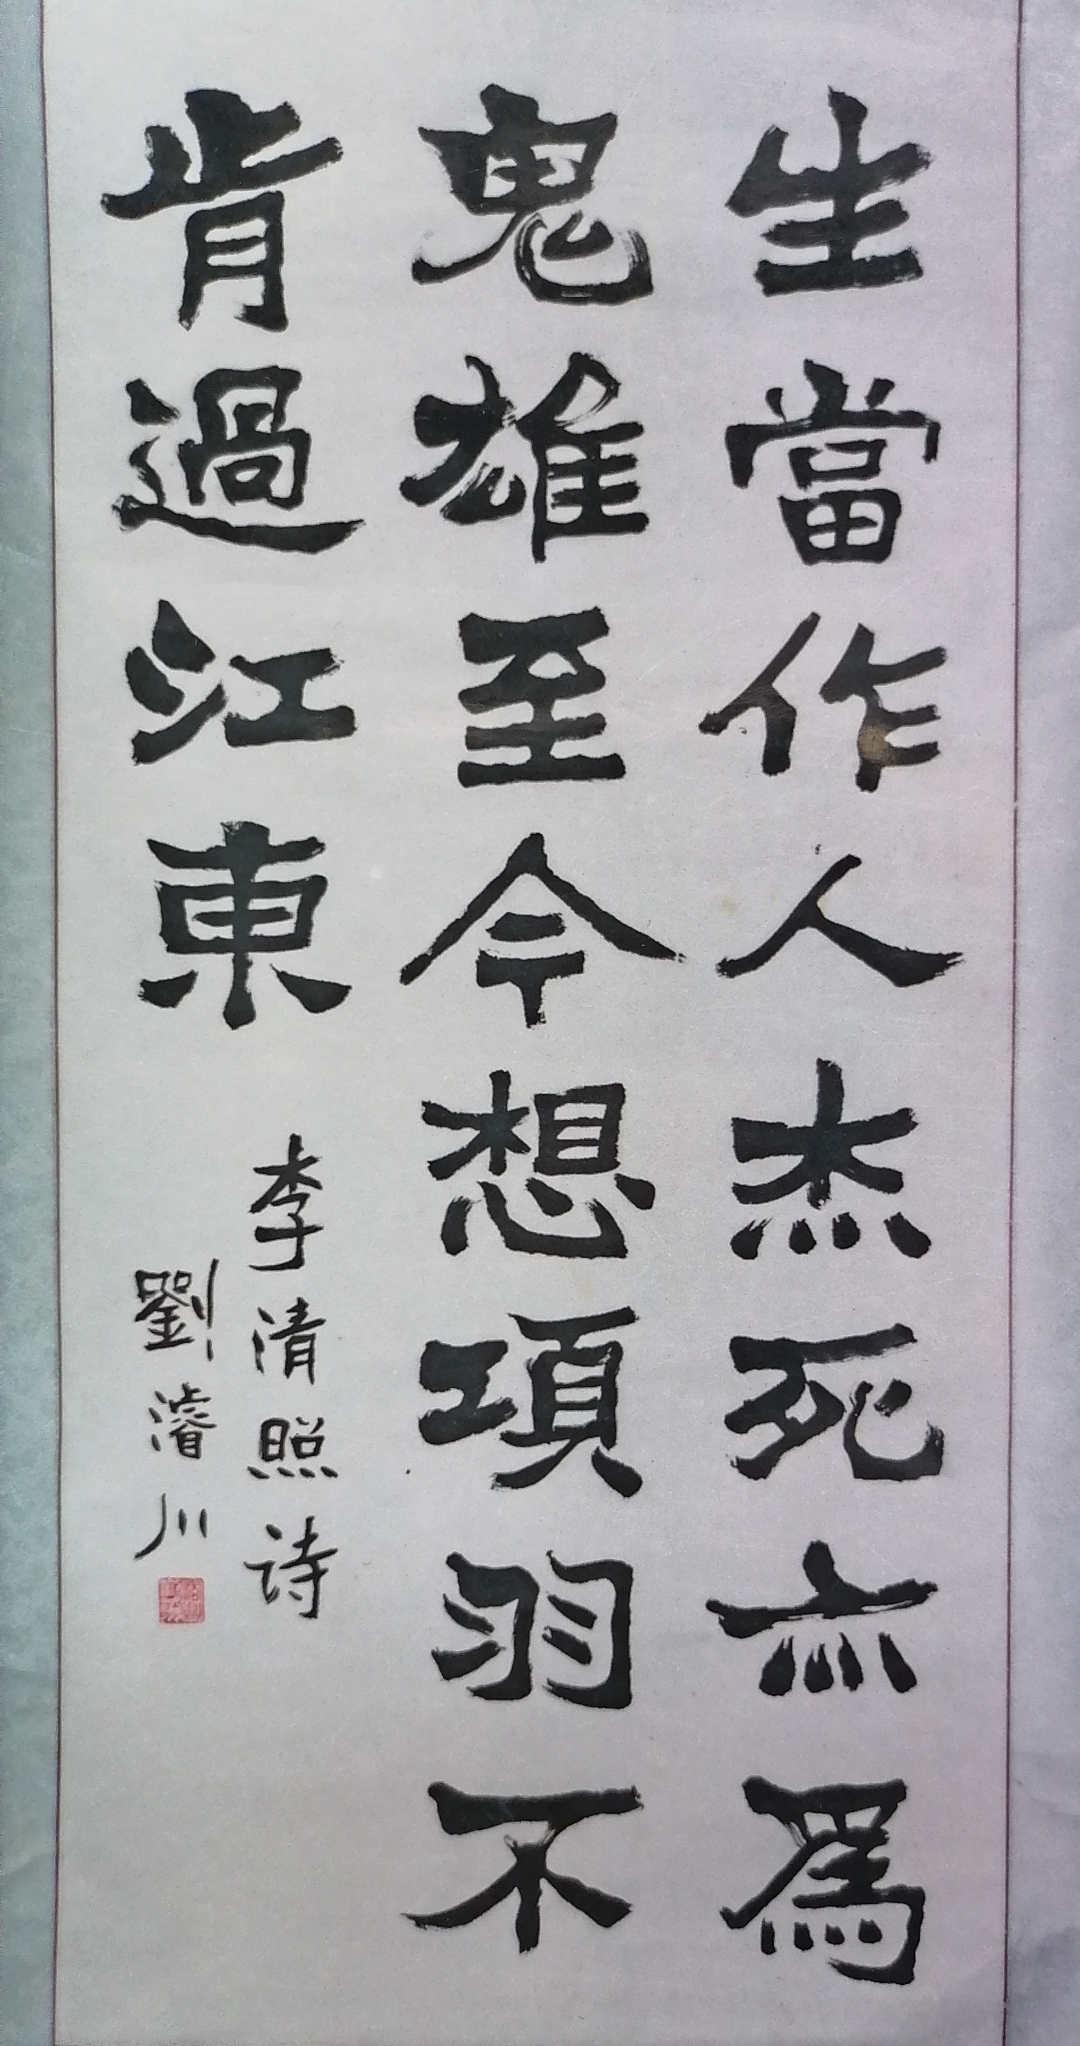 生當作人杰死亦為
鬼雄至今想項羽不
肯過江東
李清照诗
劉濬川